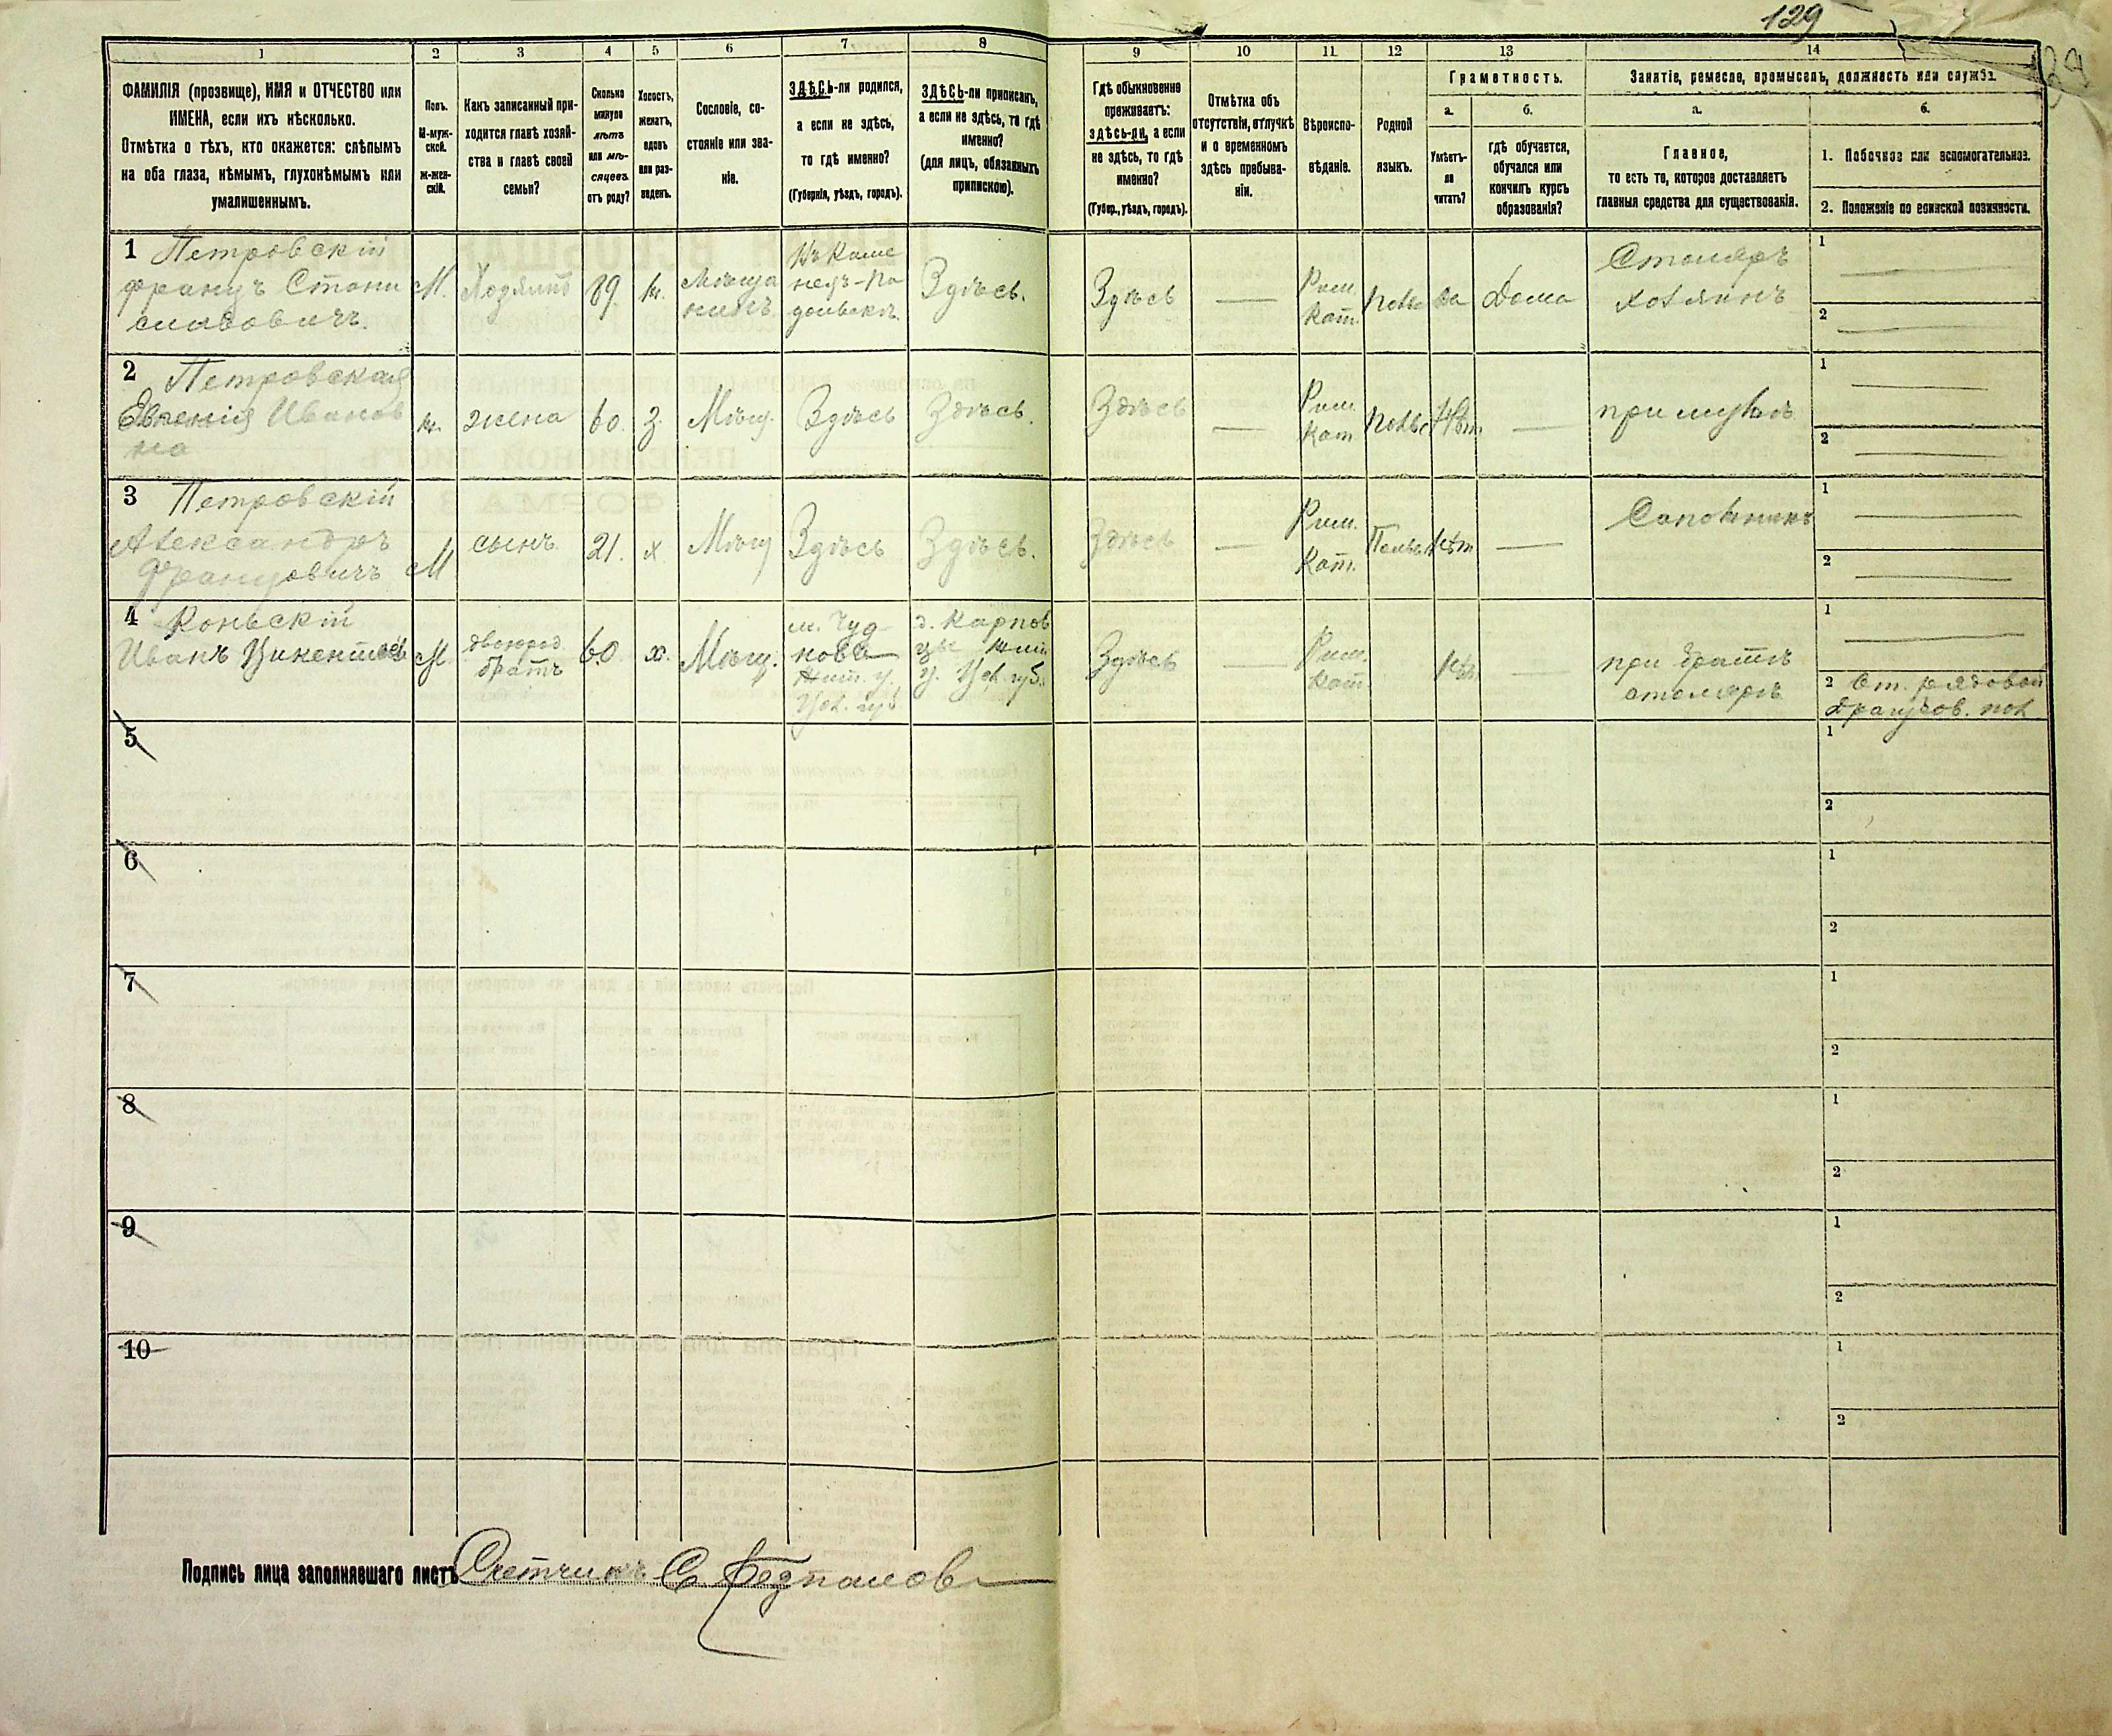 129
1
2
3
4
5
6
7
8
9
10
11
12
13
14
ФАМИЛІЯ (прозвище), ИМЯ и ОТЧЕСТВО или
ИМЕНА, если ихъ нѣсколько.
Отмѣтка о тѣхъ, кто окажется: слѣпымъ
на оба глаза, нѣмымъ, глухонѣмымъ или
умалишеннымъ.
Полъ.
М-муж-
ской.
Ж-жен-
скій.
Какъ записанный при-
ходится главѣ хозяй-
ства и главѣ своей
семьи?
Сколько
минуло
лѣтъ
или мѣ-
сяцевъ
отъ роду?
Холостъ,
женатъ,
вдовъ
или раз-
веденъ.
Сословіе, со-
стояніе или зва-
ніе.
ЗДѢСЬ-ли родился,
а если не здѣсь,
то гдѣ именно?
(Губернія, уѣздъ, городъ).
ЗДѢСЬ-ли приписанъ,
а если не здѣсь, то гдѣ
именно?
(для лицъ, обязанныхъ
припискою).
Гдѣ обыкновенно
проживаетъ:
здѣсь-ли, а если
не здѣсь, то гдѣ
именно?
(Губер., уѣздъ, городъ).
Отмѣтка объ
отсутствіи, отлучкѣ
и о временномъ
здѣсь пребыва-
ніи.
Вѣроиспо-
вѣданіе.
Родной
языкъ.
Грамотность.
а.
Умѣетъ-
ли
читать?
б.
гдѣ обучается,
обучался или
кончилъ курсъ
образованія?
Занятіе, ремесло, промыселъ, должность или служба.
а.
Главное,
то есть то, которое доставляетъ
главныя средства для существованія.
б.
1. Побочное или вспомогательное.
2. Положеніе по воинской повинности.
1 Петровскій
Францъ Стани
славовичъ.
М.
Хозяинъ
89.
ж.
Мѣща
нинъ.
Въ Каме
нецъ-По
дольскѣ.
Здѣсь.
Здѣсь
Рим.
Кат.
да
Дома
Столяръ
хозяинъ
1
2
2 Петровская
Евгенія Иванов
на
ж.
жена
60.
З.
Мѣщ.
Здѣсь
Здѣсь.
Здѣсь
Рим.
Кат.
Нѣт.
при мужѣ
1
2
3 Петровскій
Александръ
Францовичъ
М
сынъ.
21.
х
Мѣщ
Здѣсь
Здѣсь.
Здѣсь
Рим.
Кат.
Польс
Нѣт
Сапожникъ
1
2
4 Коньскій
Иванъ Викентіев
М.
двоюрод
братъ
60
х.
Мѣщ.
м. Чуд
новѣ
Жит. у.
Вол. губ.
д. Карпов
цы Жит
у. Вол. губ.
Здѣсь
Рим.
Кат.
Нѣт
при братѣ
столяръ
1
2 От. рядовой
драгунов. пол.
5
1
2
6
1
2
7
1
2
8
1
2
9
1
2
10
1
2
Подпись лица заполнявшаго листъ Счетчикъ С.